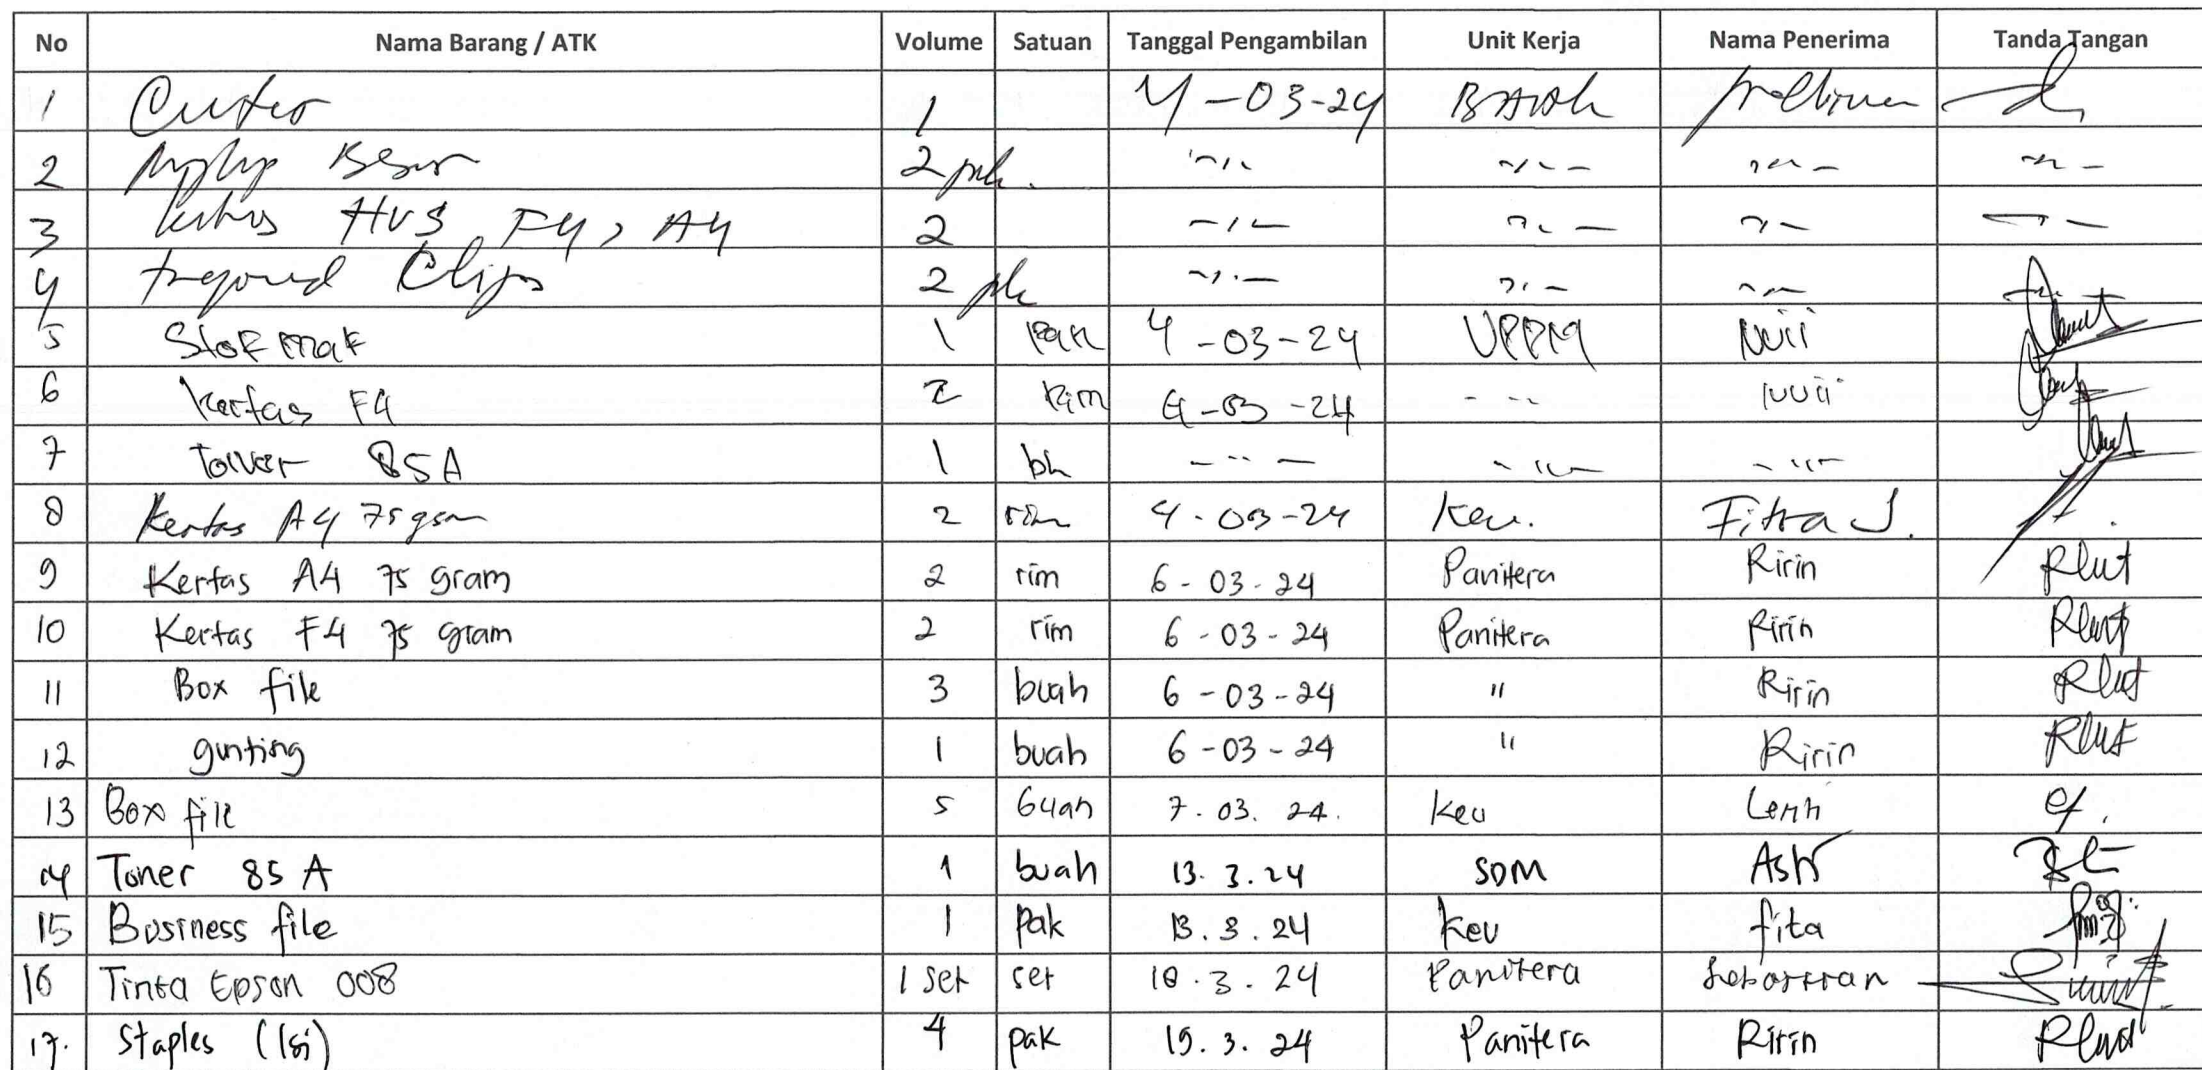 No Nama Barang / ATK Volume Satuan Tanggal Pengambilan Unit Kerja Nama Penerima Tanda Tangan
1 Cutter 1 4-03-24
2 Besar 2 pak.
3 kertas HVS F4, A4 2
4 Clips 2 pk
5 1 4-03-24 UPPM
6 kertas F4 2 Rim 4-03-24
7 85A 1 bh
8 Kertas A4 75 gsm 2 rim 4-03-24 Keu. Fitra J.
9 Kertas A4 75 gram 2 rim 6-03-24 Panitera Ririn
10 Kertas F4 75 gram 2 rim 6-03-24 Panitera Ririn
11 Box file 3 buah 6-03-24 " Ririn
12 gunting 1 buah 6-03-24 " Ririn
13 Box file 5 buah 7.03.24. keu
14 Toner 85 A 1 buah 13.3.24 SDM
15 Business file 1 Pak 13.3.24 keu fita
16 Tinta Epson 008 1 set set 18.3.24 Panitera
17. Staples (Isi) 4 pak 19.3.24 Panitera Ririn